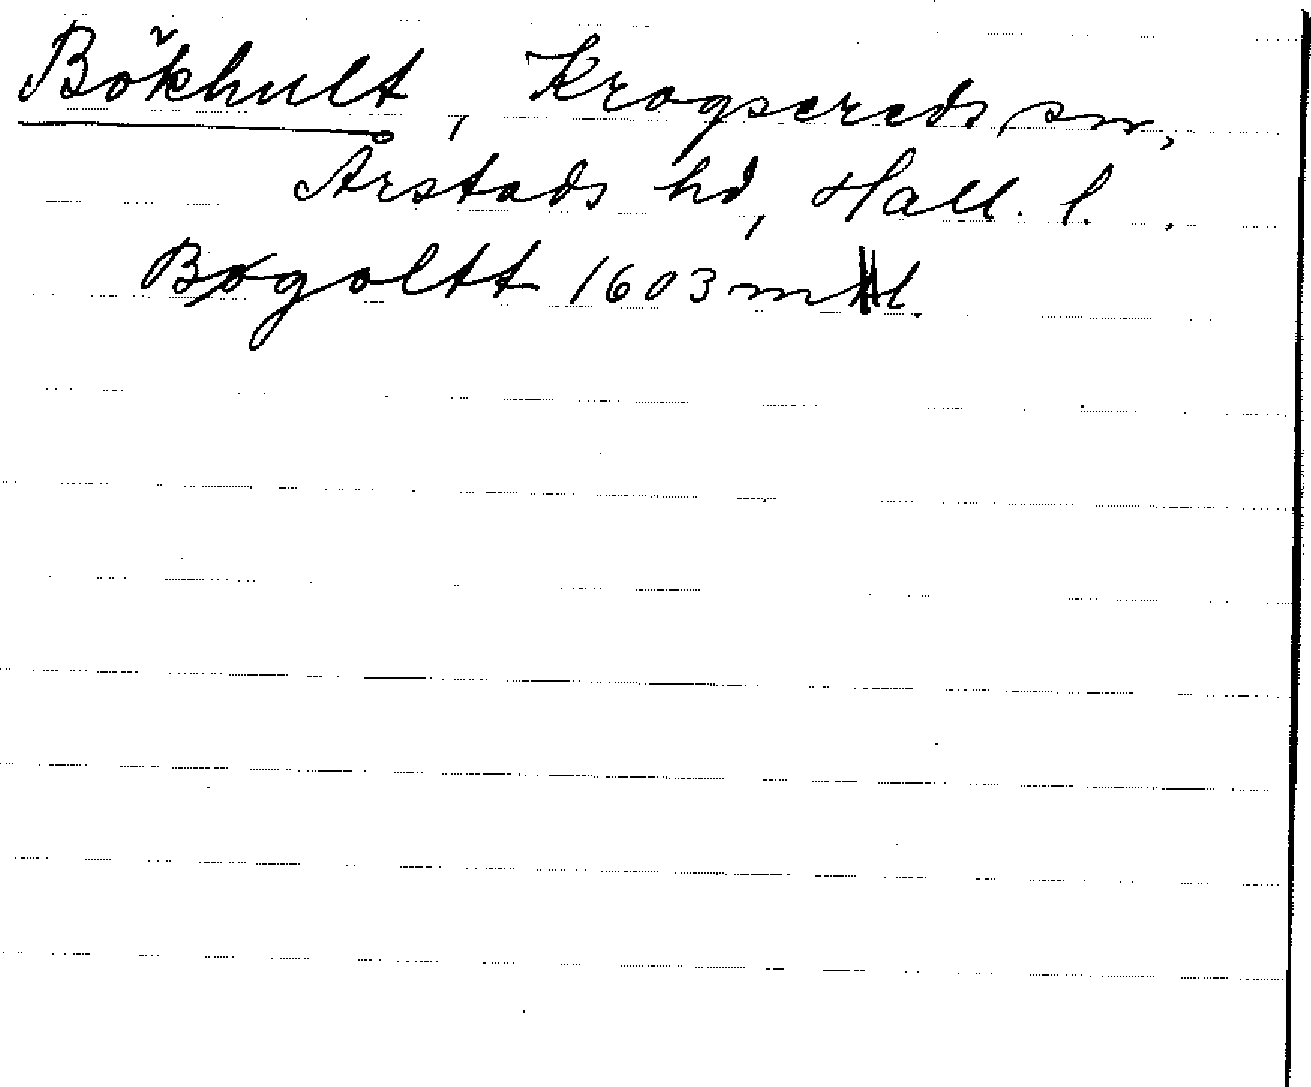 Bökhult, Krogsereds sn,
Årstads hd, Hall. l.
Bøgoltt 1603 mtl.